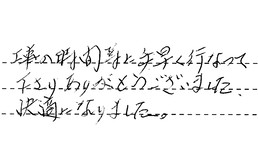 工事の時間
行なって
下さりありがとうございました。
快適になりました。